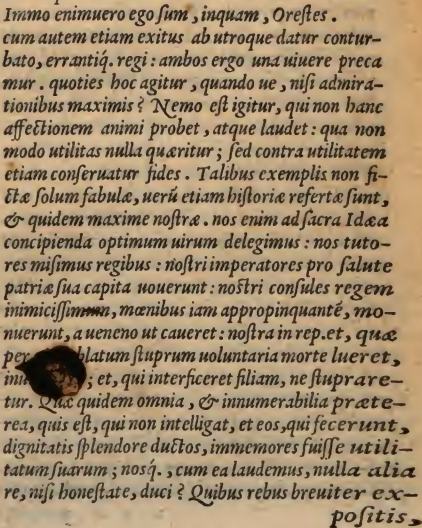 Immo enimuero ego ſum, inquam, Oreſtes.
cum autem etiam exitus ab utroque datur contur-
bato, errantiq́. regi: ambos ergo una uiuere preca
mur. quoties hoc agitur, quando ue, niſi admira-
tionibus maximis? Nemo eſt igitur, qui non hanc
affectionem animi probet, atque laudet: qua non
modo utilitas nulla quæritur; ſed contra utilitatem
etiam conſeruatur fides. Talibus exemplis non fi-
ctæ ſolum fabulæ, uerũ etiam hiſtoriæ refertæ ſunt,
& quidem maxime noſtræ. nos enim ad ſacra Idæa
concipienda optimum uirum delegimus: nos tuto-
res miſimus regibus: noſtri imperatores pro ſalute
patriæ ſua capita uouerunt: noſtri conſules regem
inimiciſſimum, mœnibus iam appropinquantẽ, mo-
nuerunt, a ueneno ut caueret: noſtra in rep. et, quæ
per blatum ſtuprum uoluntaria morte lueret,
inu ; et, qui interficeret filiam, ne ſtuprare-
tur. Quæ quidem omnia, & innumerabilia præte-
rea, quis eſt, qui non intelligat, et eos, qui fecerunt,
dignitatis ſplendore ductos, immemores fuiſſe utili-
tatum ſuarum; nosq́., cum ea laudemus, nulla alia
re, niſi honeſtate, duci? Quibus rebus breuiter ex-
poſitis,